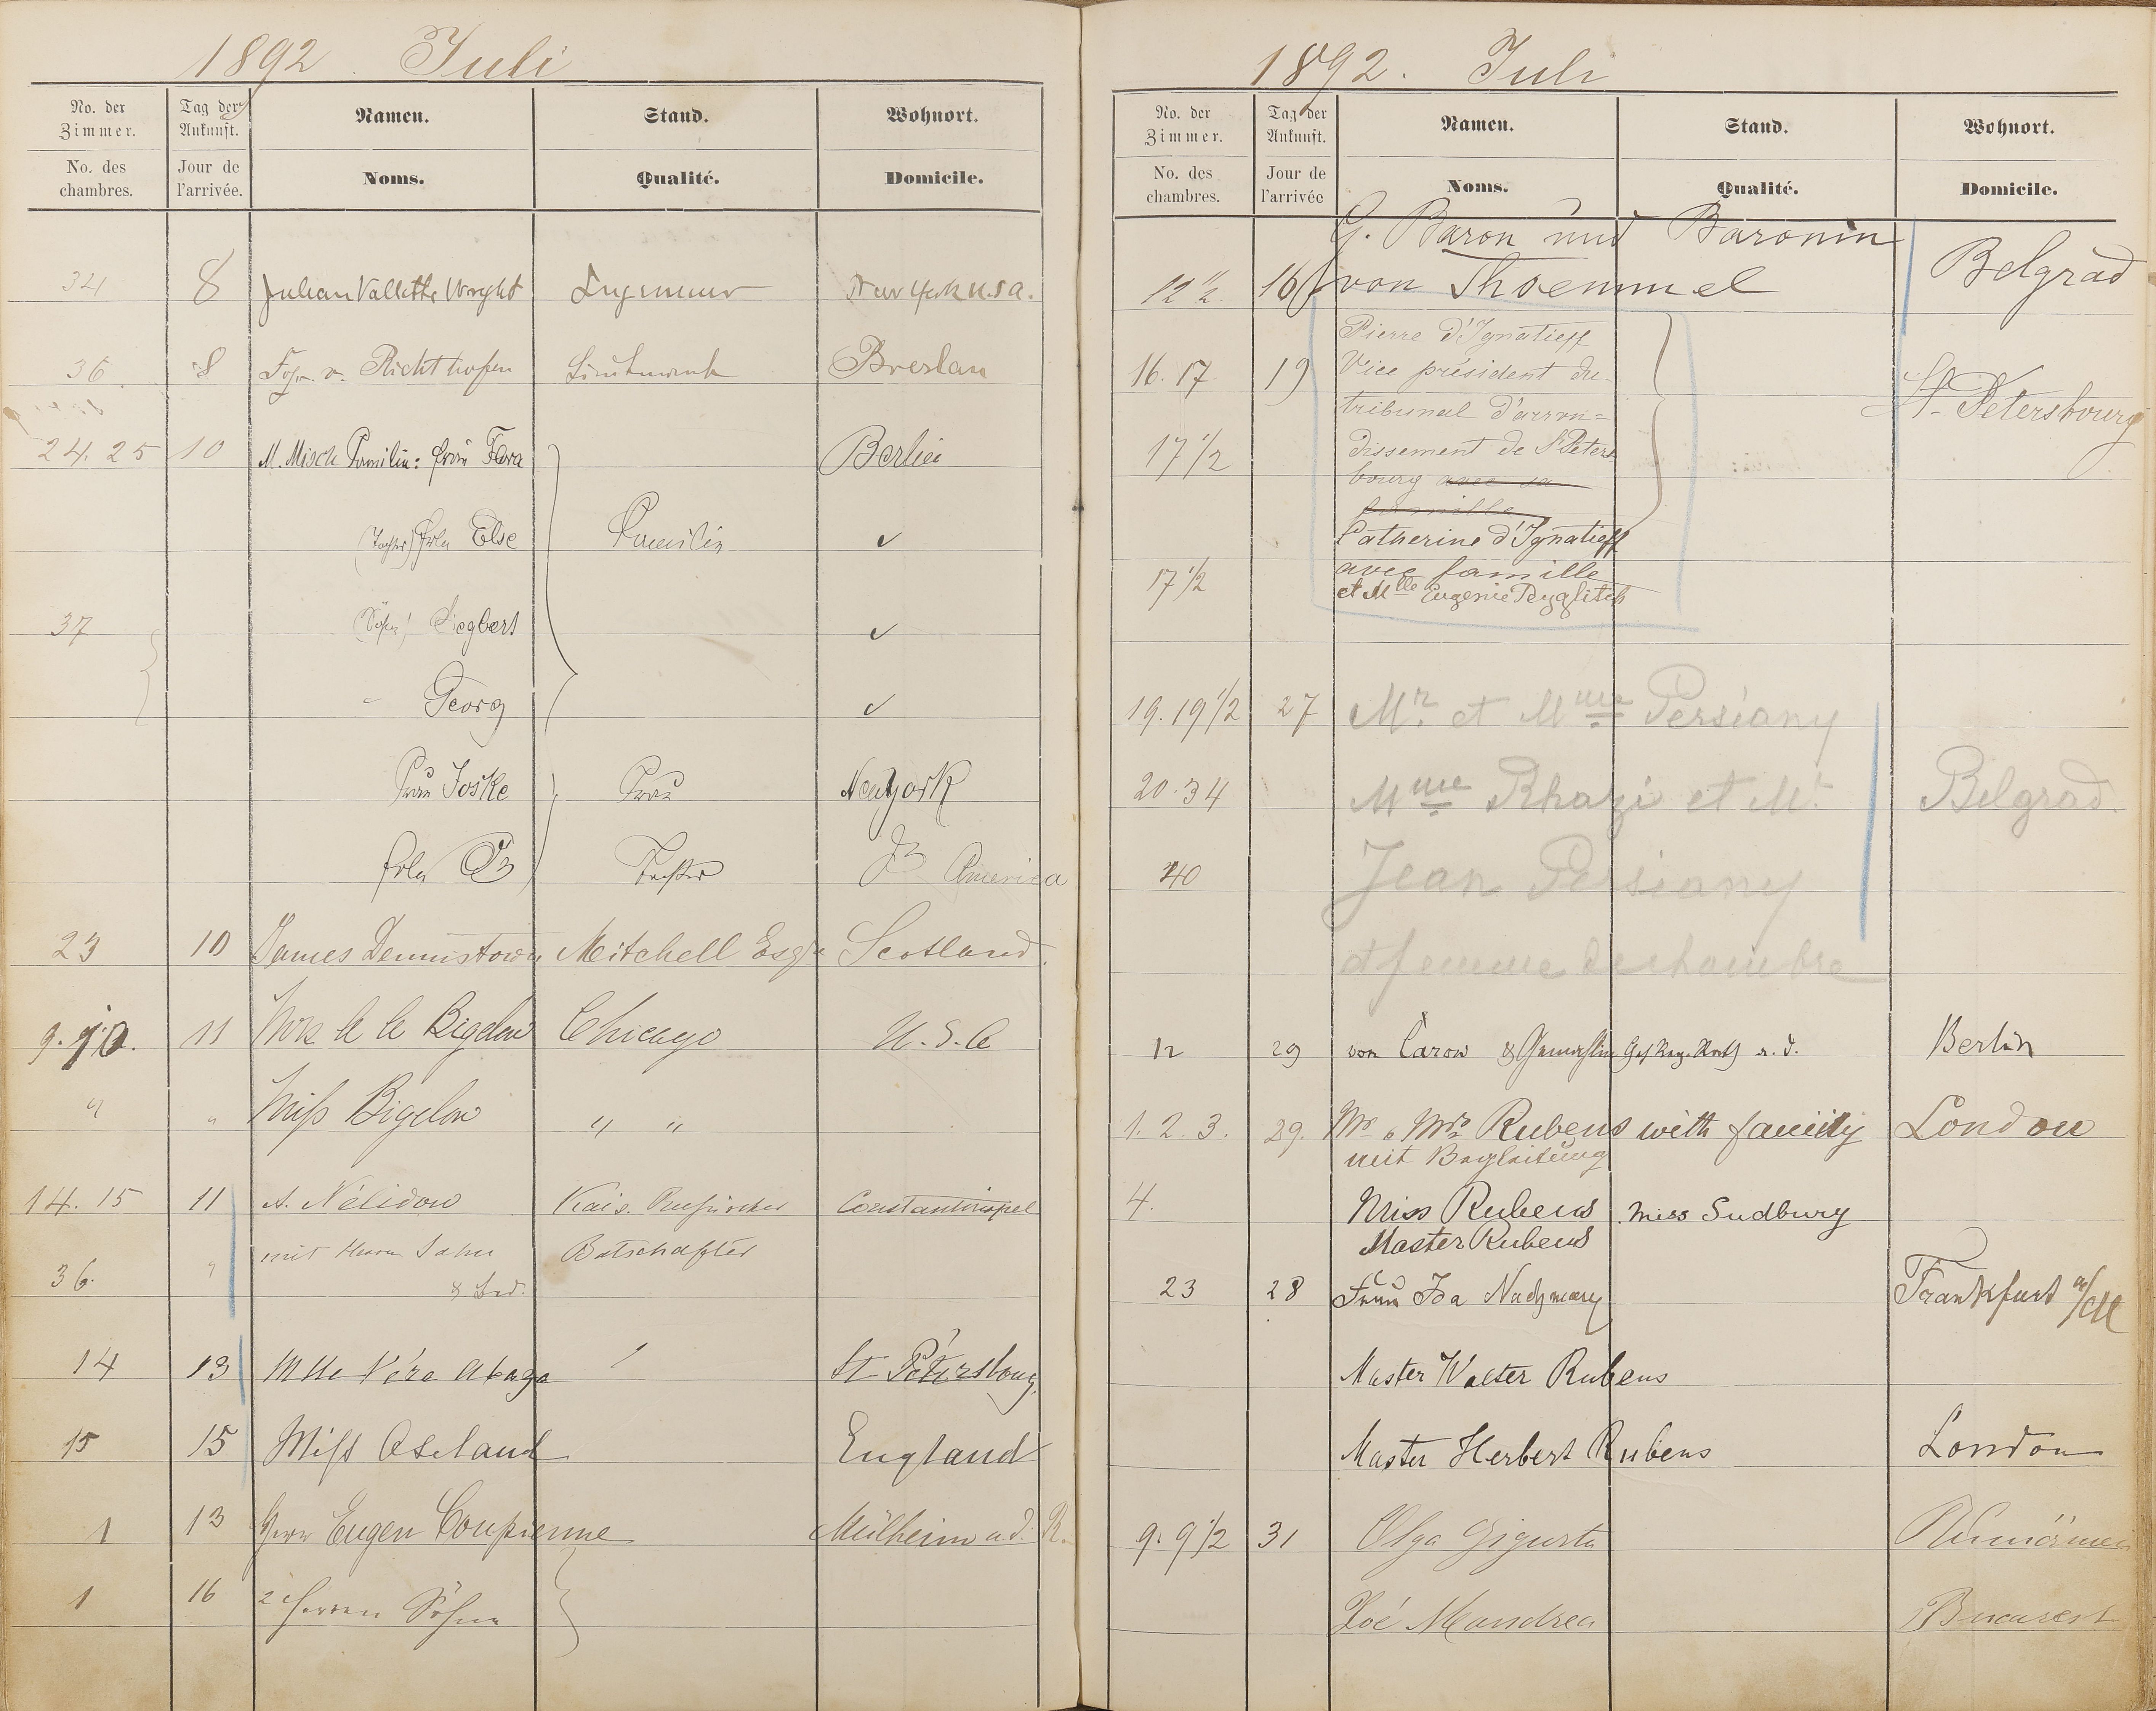 1892. Juli
No. der Zimmer. Tag der Ankunft. Namen. Stand. Wohnort.
No. des chambres. Jour de l'arrivée. Noms. Qualité. Domicile.
34 8 Julian Vallette Wright New York U.S.A.
36 8 v. Richthofen Breslau
24. 25 10 M. Misch Familie: Frau Flora Berlin
Else Familie ✓
37 Siegbert ✓
Georg ✓
Frau Joske Frau New York
Tochter America
23 10 James Dennistown Mitchell Esqr Scotland.
9. 10. 11 Bigelow Chicago U.S.A
" " Miss Bigelow " "
14. 15 11 A. Nélidow Kais. Russischer Constantinopel
mit Herrn Sohn Botschafter
36. " &
14 13 Mlle Véra Abaza St Pétersbourg
15 15 Miss Aseland England
1 13 Herr Eugen Coupienne Mülheim a. d. R.
1 16 2 Herren Söhne
1892. Juli
No. der Zimmer. Tag der Ankunft. Namen. Stand. Wohnort.
No. des chambres. Jour de l'arrivée Noms. Qualité. Domicile.
G. Baron und Baronin
12 1/2 16 von Thoemmel Belgrad
Pierre d'Ignatieff
16. 17 19 Vice président du
tribunal d'arron= St. Petersbourg
17 1/2 dissement de St Peters
bourg avec sa
famille
Catherine d'Ignatieff
17 1/2 avec famille
et Mlle Eugenie
19. 19 1/2 27 Mr. et Mme Persiany
20. 34 Mme Rhazi et Mr. Belgrad.
40 Jean Persiany
et femme de chambre
12 29 von Carow & Gemahlin a. D. Berlin
1. 2. 3. 29. Mr & Mrs Rubens with family London
mit Begleitung
4. Miss Rubens Miss Sudbury
Master Rubens
23 28 Frau Ida Frankfurt a/M
Master Walter Rubens
Master Herbert Rubens London
9. 9 1/2 31 Olga Gigurtu
Zoé Mandrea Bucarest